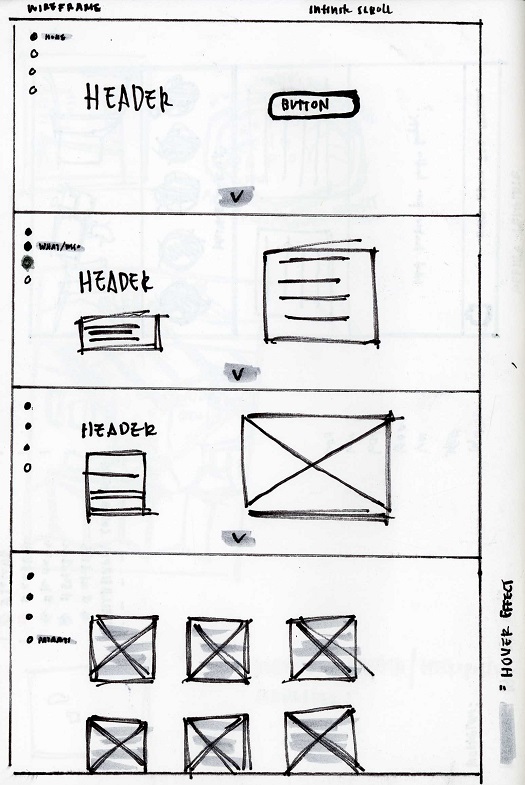 WIREFRAME
INFINITE SCROLL
HOME
HEADER
BUTTON
WHAT/WHO
HEADER
HEADER
= HOVER EFFECT